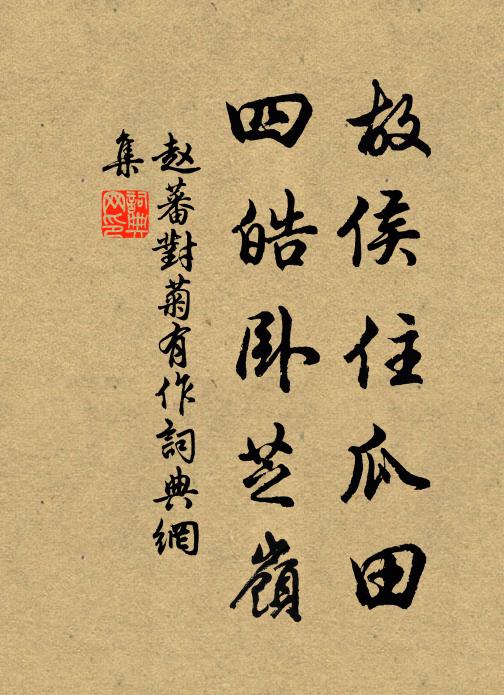 故侯住瓜田
四皓卧芝嶺
赵蕃對菊有作詞典網
集
詞典網印